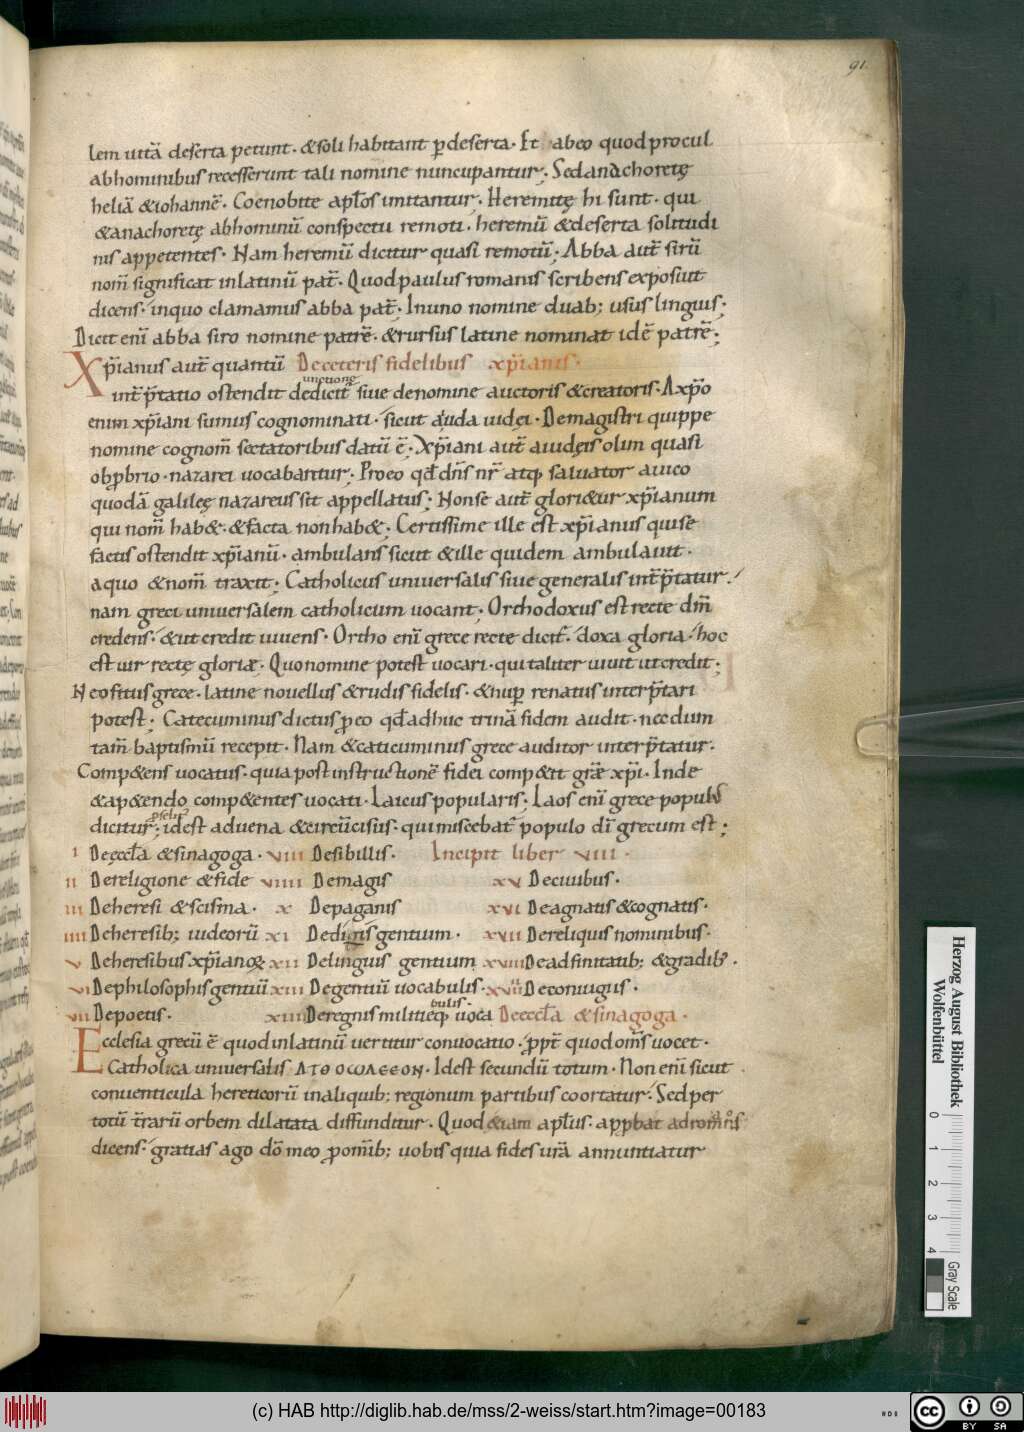 91.
lem uitā deserta petunt. &soli habitant p̄deserta. Et abeo quod procul
abhominibus recesserunt tali nomine nuncupantur; Sed anachoretę
heliā &iohannē. Coenobite apłos imitantur. Heremitę hi sunt. qui
&anachoretę abhominū conspectu remoti. heremū &deserta solitudi
nis appetentes. Nam heremū dicitur quasi remotū; Abba aut̄ sirū
nom̄ significat inlatinū pat̄. Quod paulus romanis scribens exposuit
dicens. inquo clamamus abba pat̄. Inuno nomine duab; usus linguis;
Dicit eni abba siro nomine patrē. &rursus latine nominat idē patrē;
Xp̄ianus aut̄ quantū De ceteris fidelibus xp̄ianis.
unctione
int̄p̄tatio ostendit dedicit siue denomine auctoris &creatoris. Axp̄o
enim xp̄iani sumus cognominati. sicut aiuda iudęi. Demagistri quippe
nomine cognom̄ sectatoribus datū ē; Xp̄iani aut̄ aiudęis olim quasi
obprbrio. nazarei uocabantur; Proeo qd̄ dn̄s nr̄ atq; saluator auico
quodā galileę nazareus sit appellatus; Nonse aut̄ glori&ur xp̄ianum
qui nom̄ hab&. &facta nonhab&; Certissime ille est xp̄ianus quise
factis ostendit xp̄ianū. ambulans sicut &ille quidem ambulauit.
aquo &nom̄ traxit; Catholicus uniuersalis siue generalis int̄p̄tatur.
nam greci uniuersalem catholicum uocant; Orthodoxus est recte dm̄
credens. &ut credit uiuens. Ortho eni grece recte dicit̄. doxa gloria. hoc
est uir rectę glorię. Quonomine potest uocari. qui taliter uiuit ut credit;
Neofitus grece. latine nouellus &rudis fidelis. &nup̄ renatus interp̄tari
potest; Catecuminus dictus p̄eo qd̄ adhuc trinā fidem audit. necdum
tam̄ baptismū recepit. Nam &caticuminus grece auditor interp̄tatur.
Comp&ens uocatus. quia post instructionē fidei comp&it grāe xp̄i. Inde
&ap&endo comp&entes uocati. Laicus popularis; Laos eni grece populus
dicitur; idest aduena &circūcisus. qui miscebat̄ populo dī grecum est;
I Deęccła &sinagoga. VIII Desibillis. Incipit liber VIII.
II Dereligione &fide VIIII Demagis XV Deciuibus.
III Deheresi &scisma. X Depaganis XVI Deagnatis &cognatis.
IIII Deheresib; iudeorū XI Dediis gentium. XVII Dereliquis nominibus.
V Deheresibus xp̄ianoꝝ XII Delinguis gentium XVIII Deadfinitatib; &gradib;.
VI Dephilosophis gentiū XIII Degentiū uocabulis. XVIIII Deconiugiis.
bulis.
VII Depoetis. XIIII Deregnis militięq; uoca Deeccła &sinagoga.
Ecclesia grecū ē quod inlatinū uertitur conuocatio. p̄pt̄ quod om̄s uocet.
Catholica uniuersalis ΑΤΘΟΩΛΕΕΟΝ. Idest secundū totum. Non enī sicut
conuenticula hereticorū inaliquib; regionum partibus coortatur. Sed per
totū t̄rarū orbem dilatata diffunditur. Quod &iam apłus. app̄bat adromanos
dicens. gratias ago dō meo p̄ omīb; uobis quia fides urā annuntiatur
Herzog August Bibliothek
Wolfenbüttel
0 1 2 3 4
Gray Scale
(c) HAB http://diglib.hab.de/mss/2-weiss/start.htm?image=00183
cc BY SA